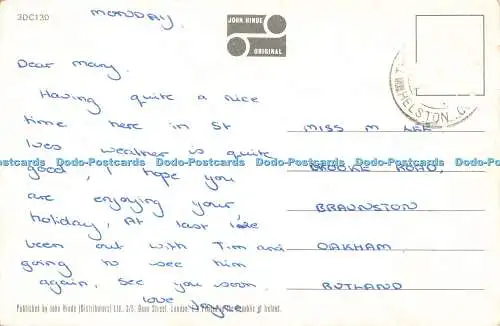 3DC130
MONDAY.
JOHN HINDE
ORIGINAL
Dear Mary.
Having quite a nice
time here in St
Ives weather is quite
good, I hope you
are enjoying your
holiday, At last I've
been out with Tim and
going to see him
again, see you soon.
love Joyce
HELSTON
MISS M LEE
BROOKE ROAD,
BRAUNSTON
OAKHAM
RUTLAND
Dodo-Postcards Dodo-Postcards Dodo-Postcards Dodo-Postcards Dodo-Postcards
Published by John Hinde (Distributors) Ltd., Dean Street, London, Republic of Ireland.